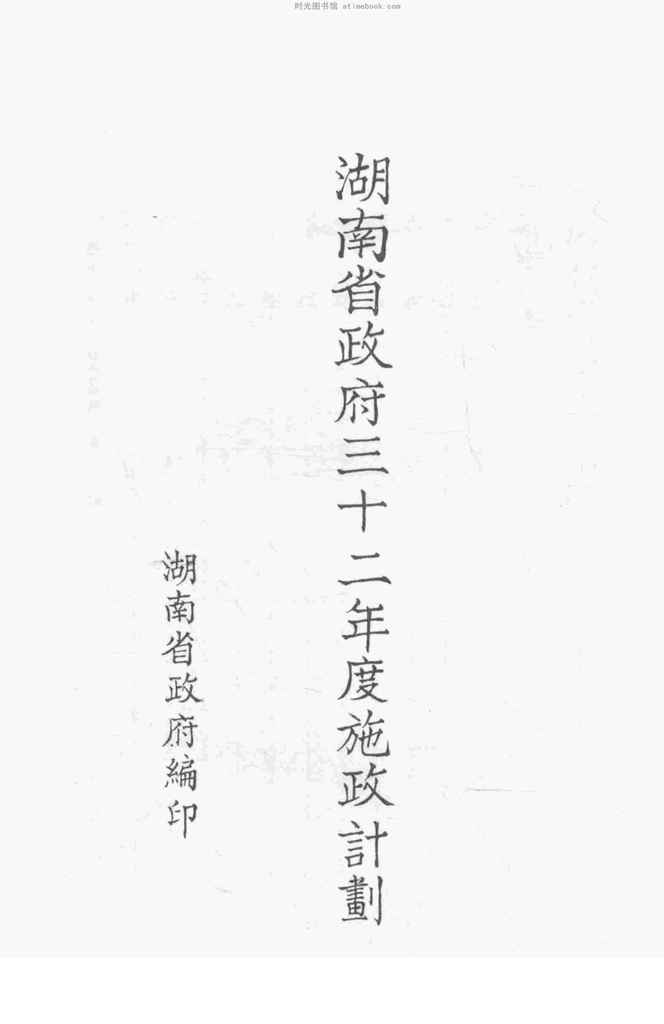 时光图书馆 atimebook.com
湖南省政府三十二年度施政計劃
湖南省政府編印